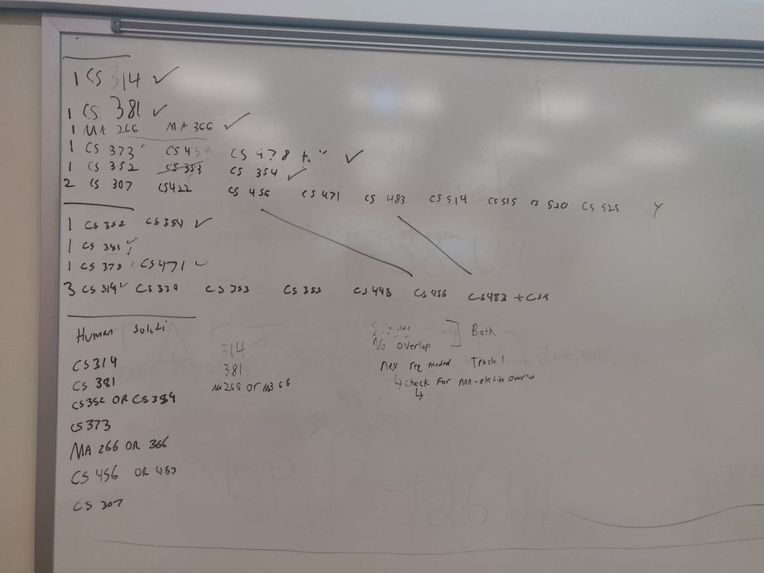 1 CS 314 ✓
1 CS 381 ✓
1 MA 266 MA 366 ✓
1 CS 373 ✓
1 CS 352 CS 353 CS 354 ✓
2 CS 307 CS422 CS 456 CS 471 CS 483 CS 514 CS 515 CS 520 CS 525 Y
1 CS 352 CS 354 ✓
1 CS 381 ✓
1 CS 373 CS 471 ✓
3 CS 314 CS 353 CS 448 CS 456 CS 483
Human
CS 314
CS 381
CS 352 OR CS 354
CS 373
MA 266 OR 366
CS 456 OR 483
CS 307
314
381
MA 266 OR MA 366
Both
No overlap
Track 1
↳ check for non-elective overlap
↳